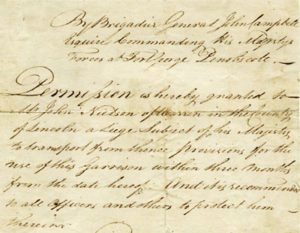 By Brigadier General John Campbell
Esquire Commanding His Majestys
Forces at Fort George Penobscote.
Permission is hereby granted to
Mr John Neilson of Warren in the County
of Lincoln a Liege Subject of his Majesty
to transport from thence provisions for the
use of this Garrison within three months
from the date hereof. And it is recommended
to all officers and others to protect him
therein